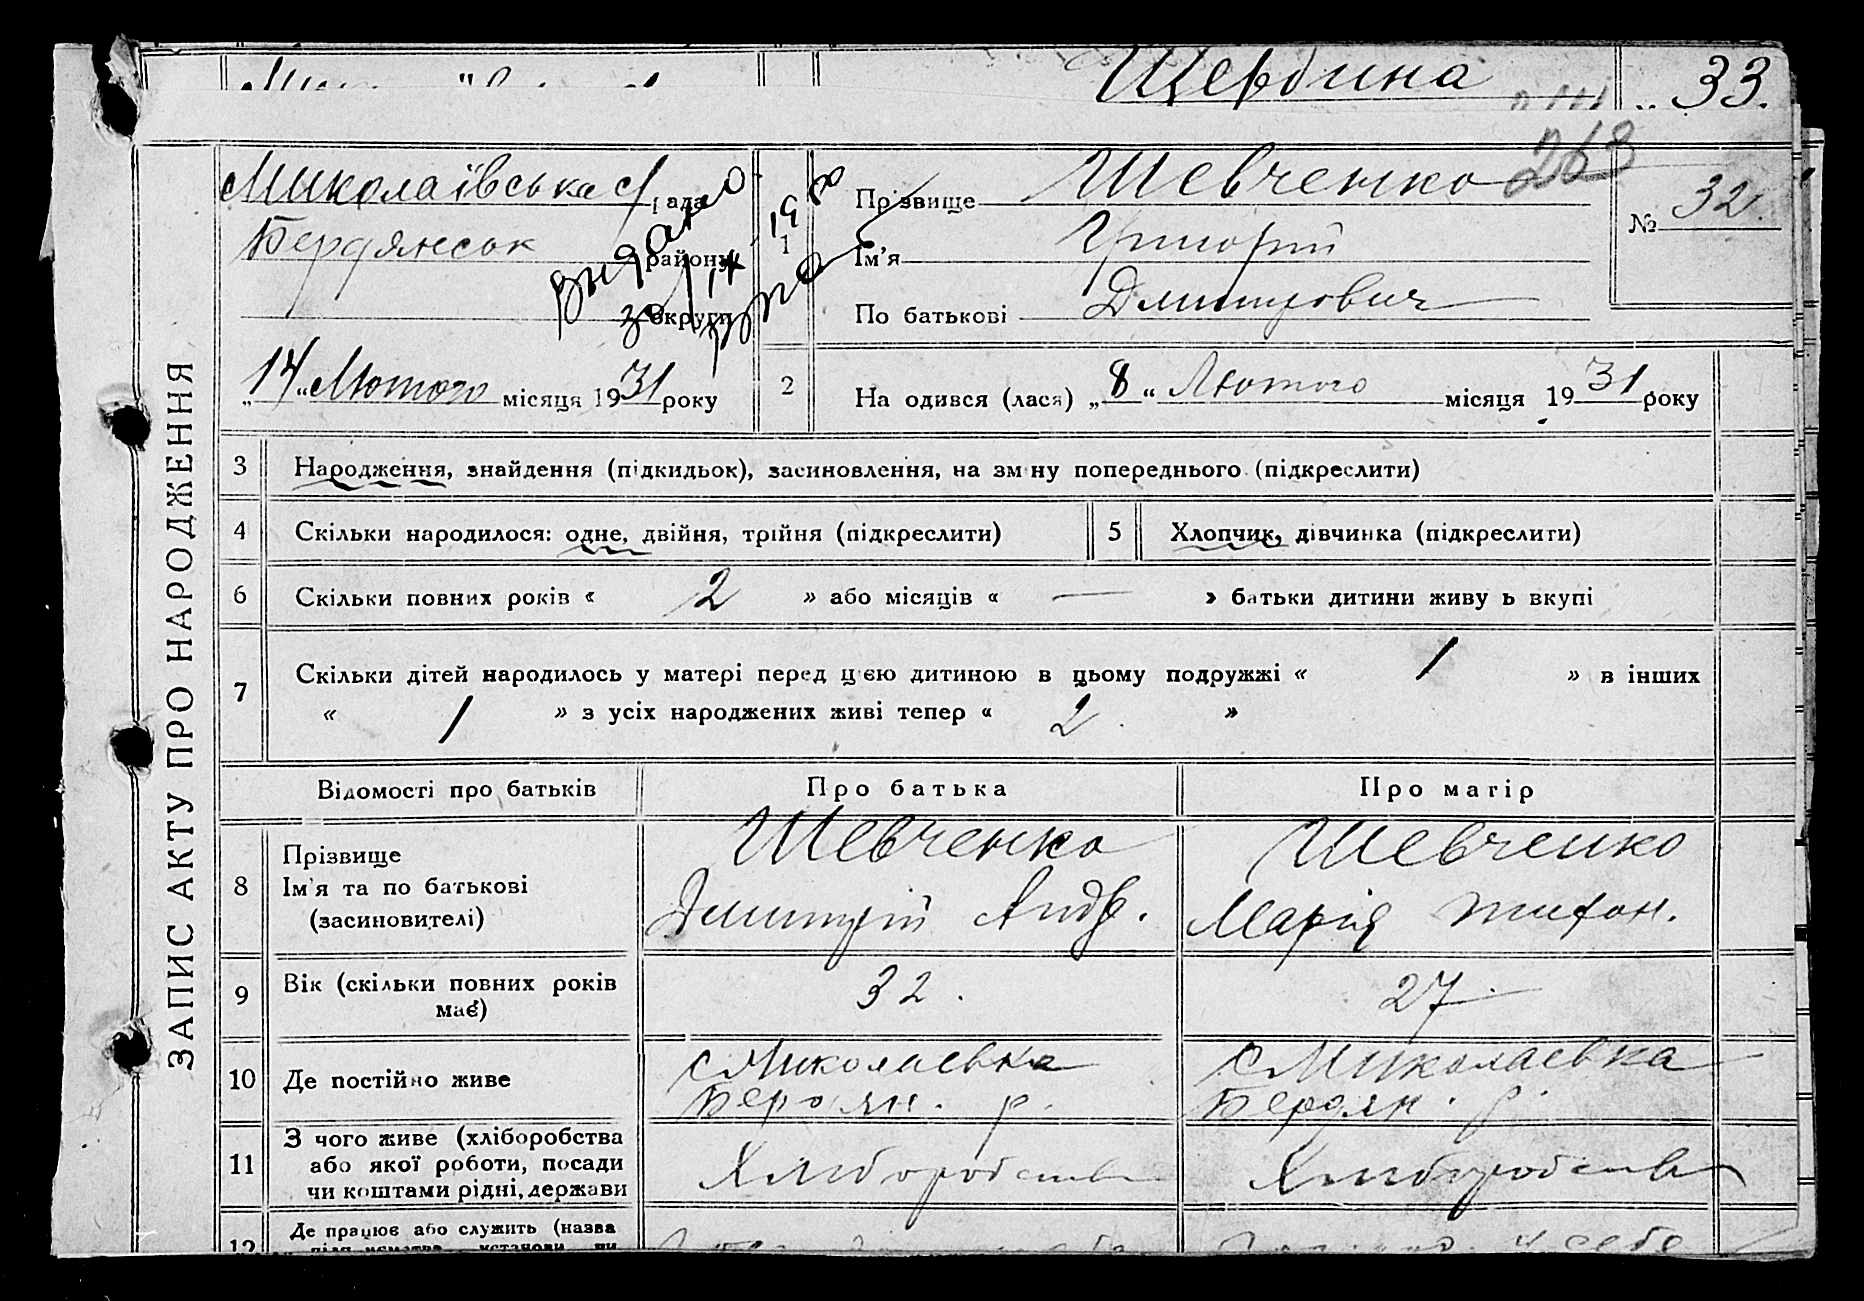 Щербина 33.
ЗАПИС АКТУ ПРО НАРОДЖЕННЯ
Миколаївська с/рада
Бердянськ району
округи
видано
1
Прізвище Шевченко
263
№ 32.
Ім'я Григорій
По батькові Дмитрович
„14“ Лютого місяця 1931 року
2 На одився (лася) „8“ Лютого місяця 1931 року
3 Народження, знайдення (підкидьок), засиновлення, на зм ну попереднього (підкреслити)
4 Скільки народилося: одне, двійня, трійня (підкреслити) 5 Хлопчик, дівчинка (підкреслити)
6 Скільки повних років « 2 » або місяців « — » батьки дитини живу ь вкупі
7 Скільки дітей народилось у матері перед цією дитиною в цьому подружжі « 1 » в інших
« 1 » з усіх народжених живі тепер « 2 »
Відомості про батьків Про батька Про матір
8 Прізвище Шевченко Шевченко
Ім'я та по батькові Дмитрій Андр. Марія Тихон.
(засиновителі)
9 Вік (скільки повних років має) 32. 27
10 Де постійно живе с Миколаевка с Миколаевка
Бердян. р. Бердян. р.
11 З чого живе (хліборобства Хліборобств Хліборобств
або якої роботи, посади
чи коштами рідні, держави
12 Де працює або служить (назва